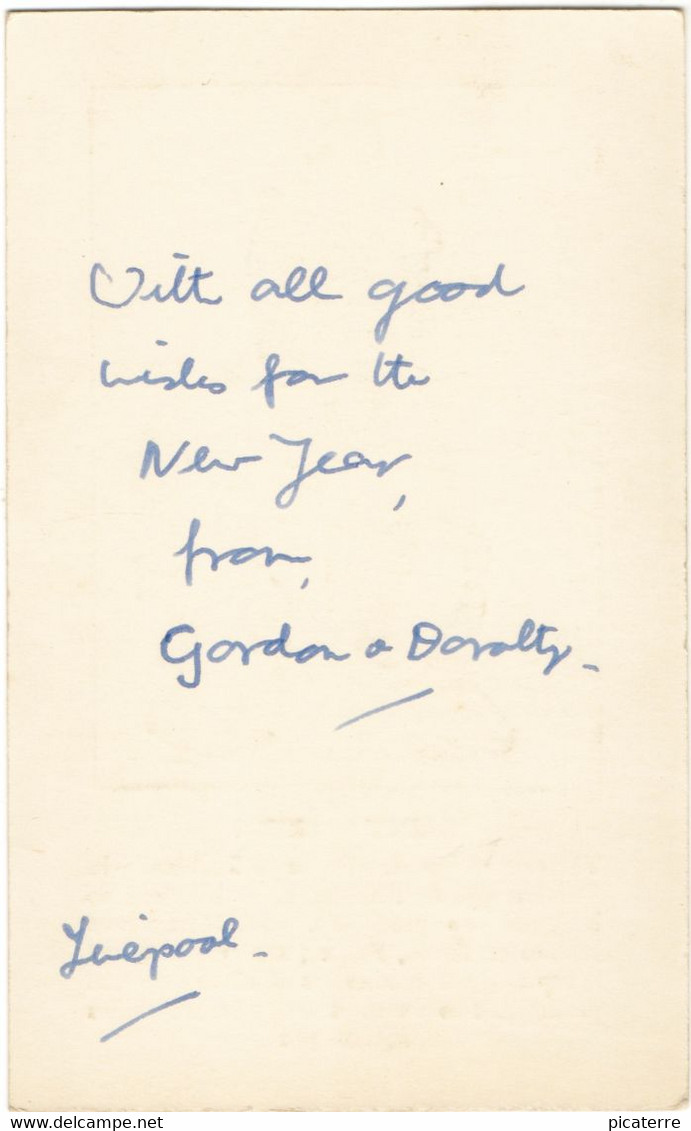 With all good
wishes for the
New Year,
from,
Gordon & Dorothy.
Liverpool.
www.delcampe.net
picaterre